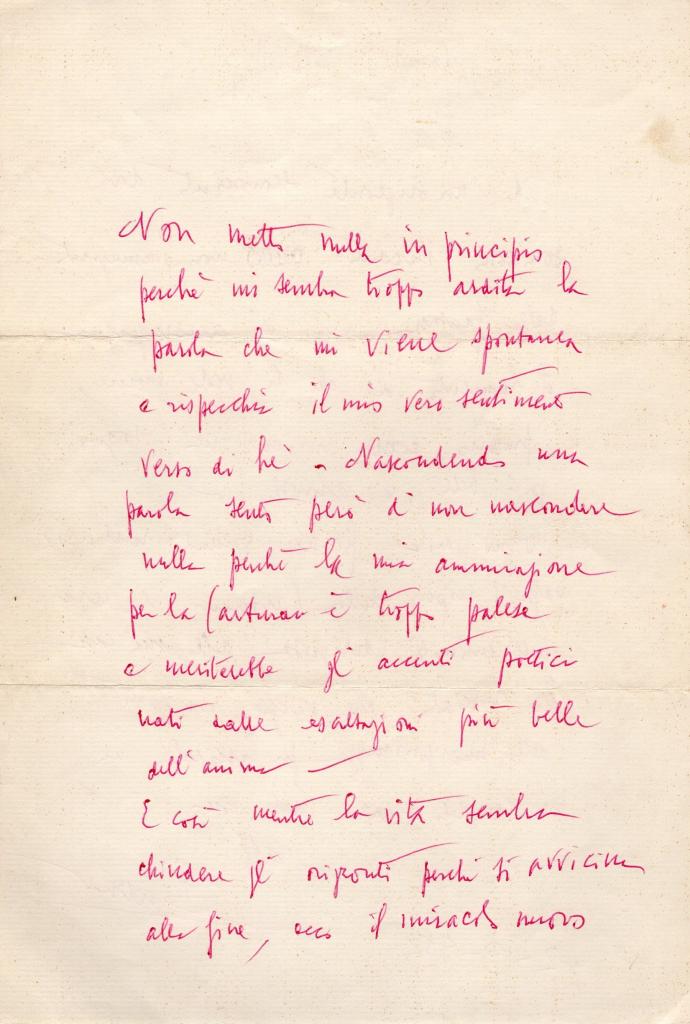 Non metto nulla in principio
perchè mi sembra troppo ardita la
parola che mi viene spontanea
e rispecchia il mio vero sentimento
verso di Lei. Nascondendo una
parola sento però di non nascondere
nulla perchè la mia ammirazione
per la è troppo palese
e meriterebbe gli accenti poetici
nati dalle esaltazioni più belle
dell'anima —
E così mentre la vita sembra
chiudere gli orizzonti perchè si avvicina
alla fine, ecco il miracolo nuovo